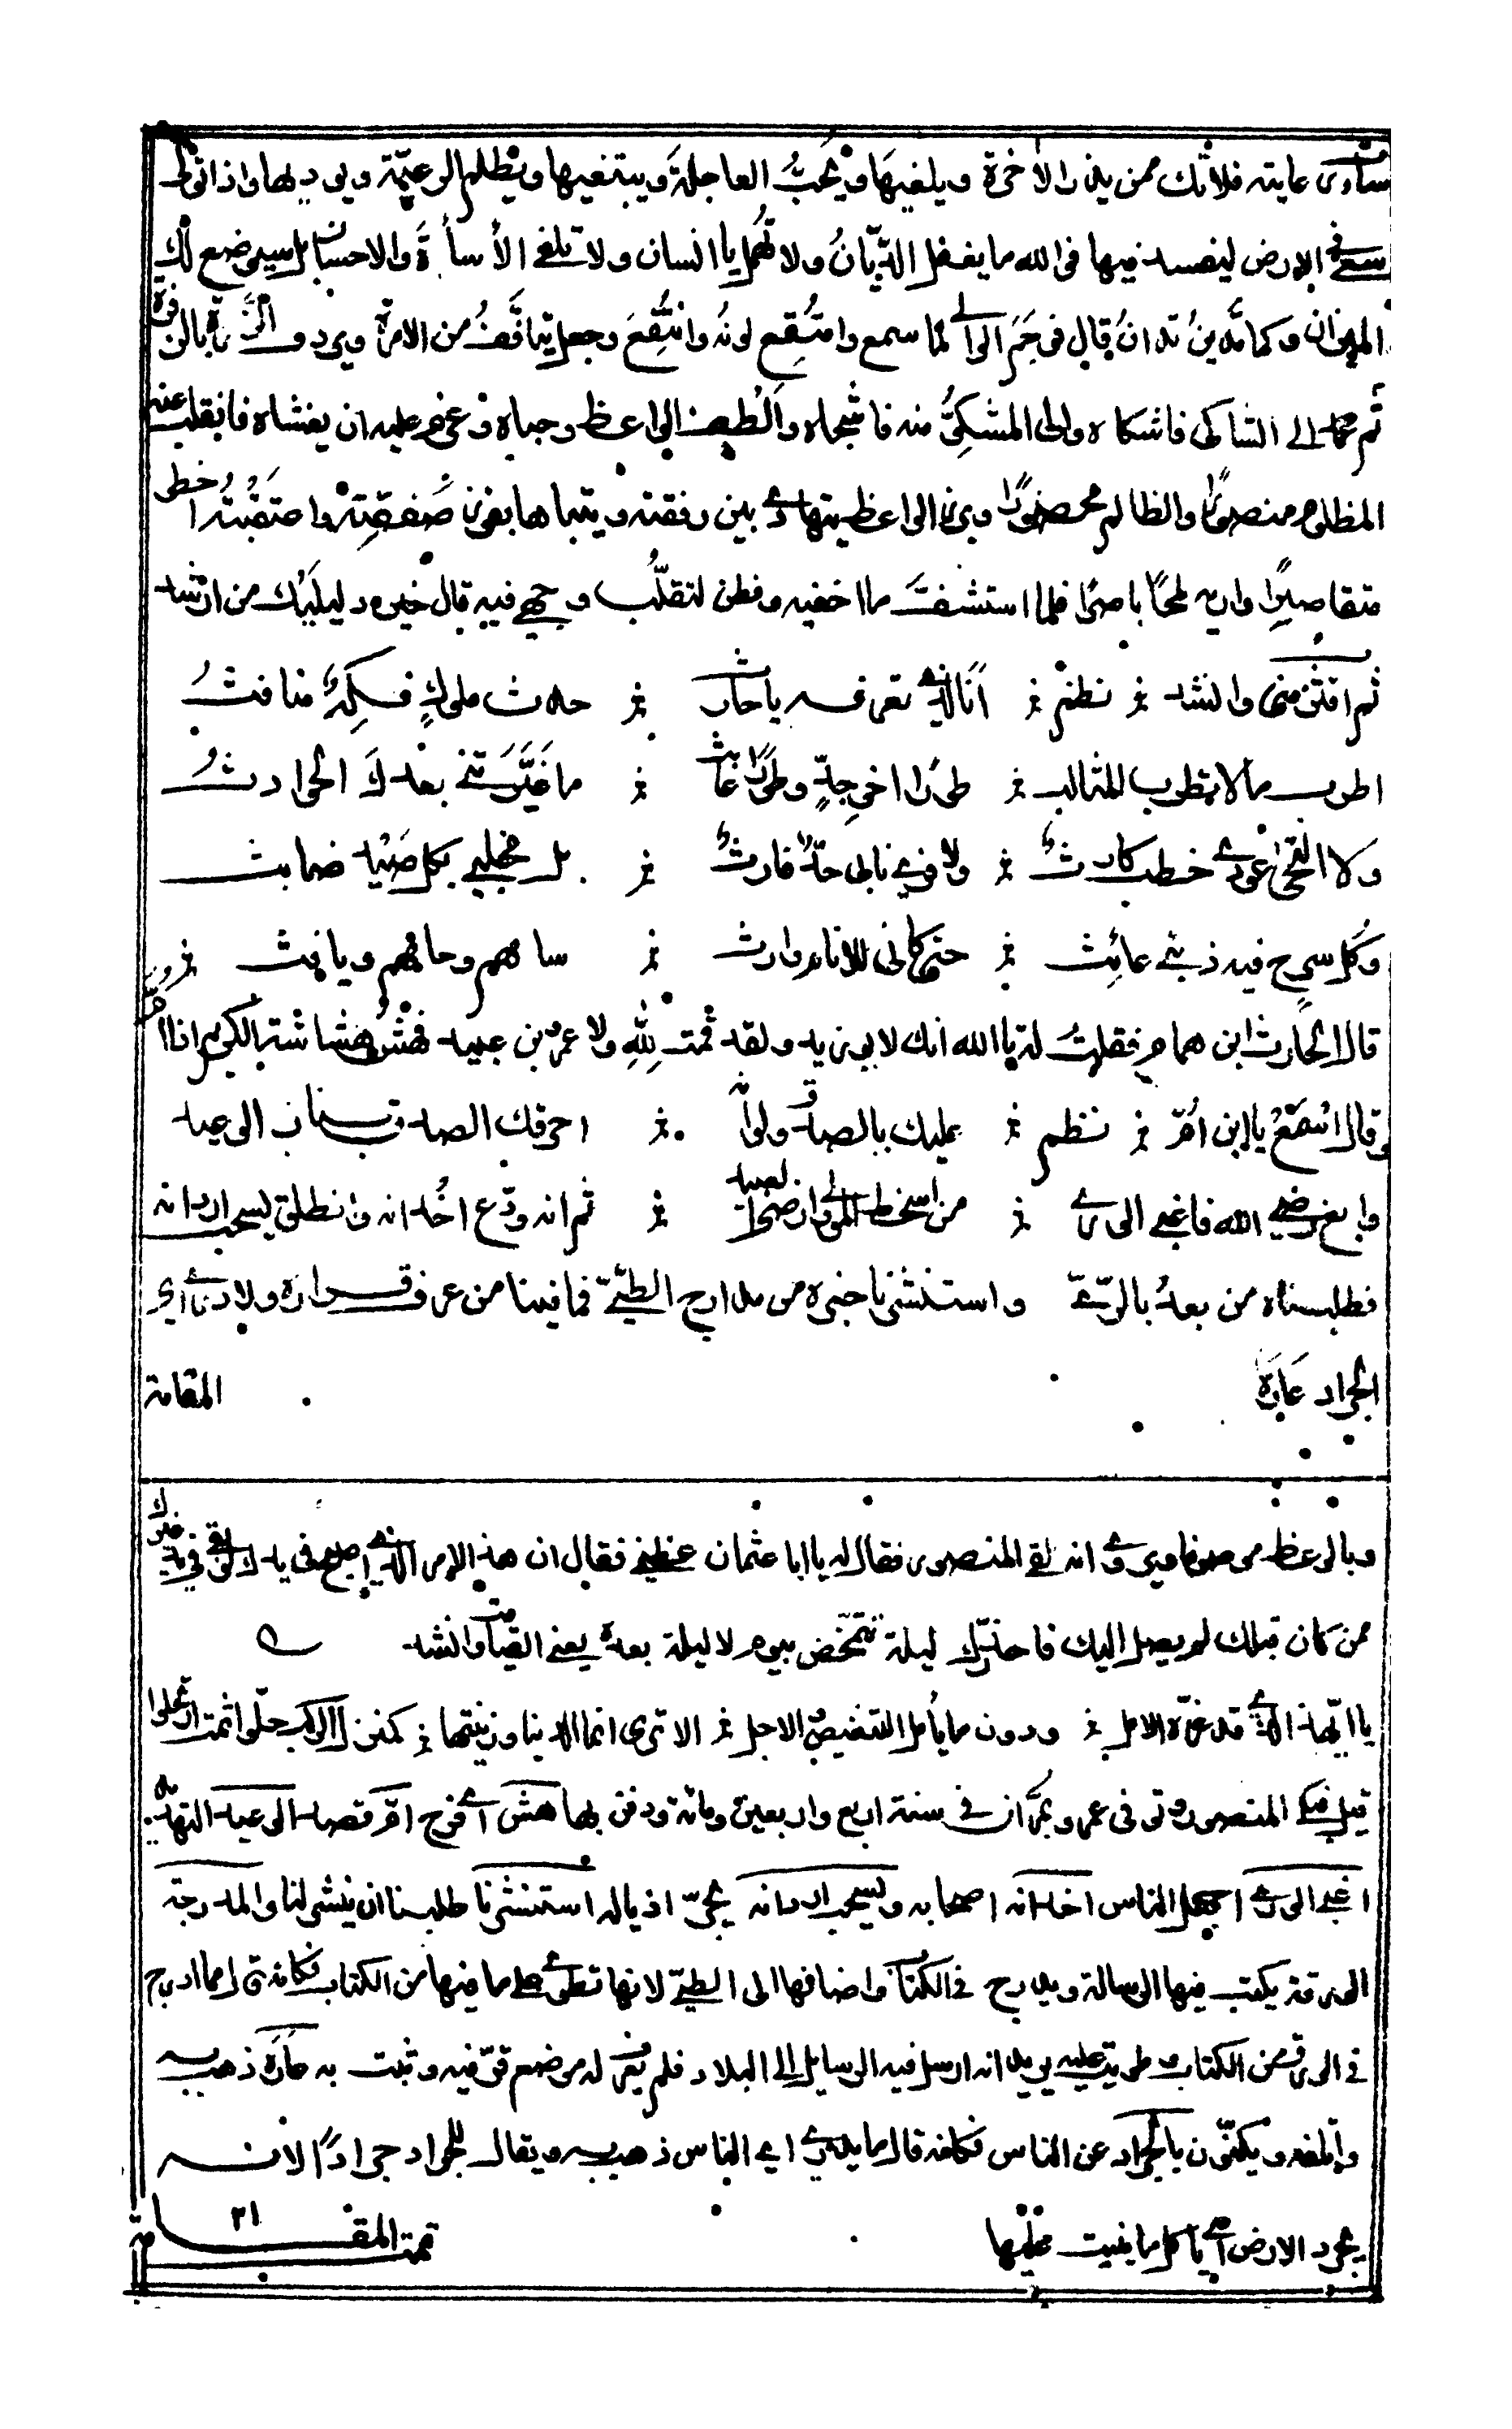 ستأوى عايته فلا تك ممن يذر الاخرة ويلغيها ويحب العاجلة ويبتغيها ويظلم الرعية ويوديها واذا تولى
سعى في الارض ليفسد فيها فو الله ما يغفل الديان ولا تهمل يا انسان ولا تلغى الأساة والاحسان بل سيوضع لك
الميزان وكما تدين تدان قال فوجم الوالي لما سمع وامتقع لونه وانتقع وجعل يتافف من الامرة ويردف الزفرة بالزفرة
ثم عمد الى الشاكى فاشكاه والى المشكو منه فاشجاه والطف الواعظ وحباه وعزم عليه ان يغشاه فانقلب عنه
المظلوم منصورا والظالم محصورا وبرز الواعظ يتهادى بين رفقته ويتباها بفوز صفقته واعتقبته اخطو
متقاصرا واريه لمحا باصرا فلما استشف ما اخفيه وفطن لتقلب وجهي فيه قال خير دليليك من ارشد
ثم اقترب منى وانشد نظم انا الذي تعرفه يا حارث حدث ملوك فكه منافث
اطرب ما لا يطرب المثالث طورا اخو جد وطورا عابث ما غيرتني بعدك الحوادث
ولا التحى عودي خطب كارث ولا فرى نابى حد فارث بل مخلبي بكل صيد ضابث
وكل سرح فيه ذئبي عائث حتى كانى للانام وارث سامهم وحامهم ويافث
قال الحارث ابن همام فقلت له تا الله انك لابو زيد ولقد قمت لله ولا عمرو بن عبيد فهش هشاشة الكريم اذا امّ
وقال اسمع يا ابن امّ نظم عليك بالصدق ولو انه احرقك الصدق بنار الوعيد
وابغ رضى الله فاغبى الورى من اسخط المولى وارضى العبيد ثم انه ودع اخدانه وانطلق يسحب اردانه
فطلبناه من بعد بالري واستنشرنا خبره من مدارج الطي فما فينا من عرف قراره ولا درى اي
الجراد عاره المقامة
وبالوعظ موصوفا وروى انه لقى المنصور فقال له يا ابا عثمان عظني فقال ان هذا الامر الذي اصبح في يدك لو بقى في يد غيرك
ممن كان قبلك لم يصل اليك فاحذر ليلة تتمخض بيوم لا ليلة بعده يعني القيامة وانشد
يا ايهذا الذي قد غره الامل ودون ما يأمل التنغيص والاجل الا ترى انما الدنيا وزينتها كمنزل الركب حلوا ثمت ارتحلوا
قيل فبكى المنصور وتوفى عمرو بمران في سنة اربع واربعين ومائة ودفن بها هش اي فرح امّ قصد الوعيد التهديد
اغبى الورى اجهل الناس اخدانه اصحابه ويسحب اردانه يجر اذياله استنشرنا طلبنا ان ينشر لنا والمدرجة
الورقة يكتب فيها الرسالة ويدرج في الكتاب واضافها الى الطي لانها تطوى على ما فيها من الكتاب فكانه قال مما ادرج
في الورق من الكتاب وطويت عليه يريد انه ارسل فيه الرسايل الى البلاد فلم يعرف له موضع قر فيه وثبت به عاره ذهب به
واتلفه ويكنون بالجراد عن الناس فكانه قال ما يدري اي الناس ذهب به ويقال للجراد جرادا لانه
يجرد الارض اي يأكل ما ينبت عليها تمت المقامة ٢١